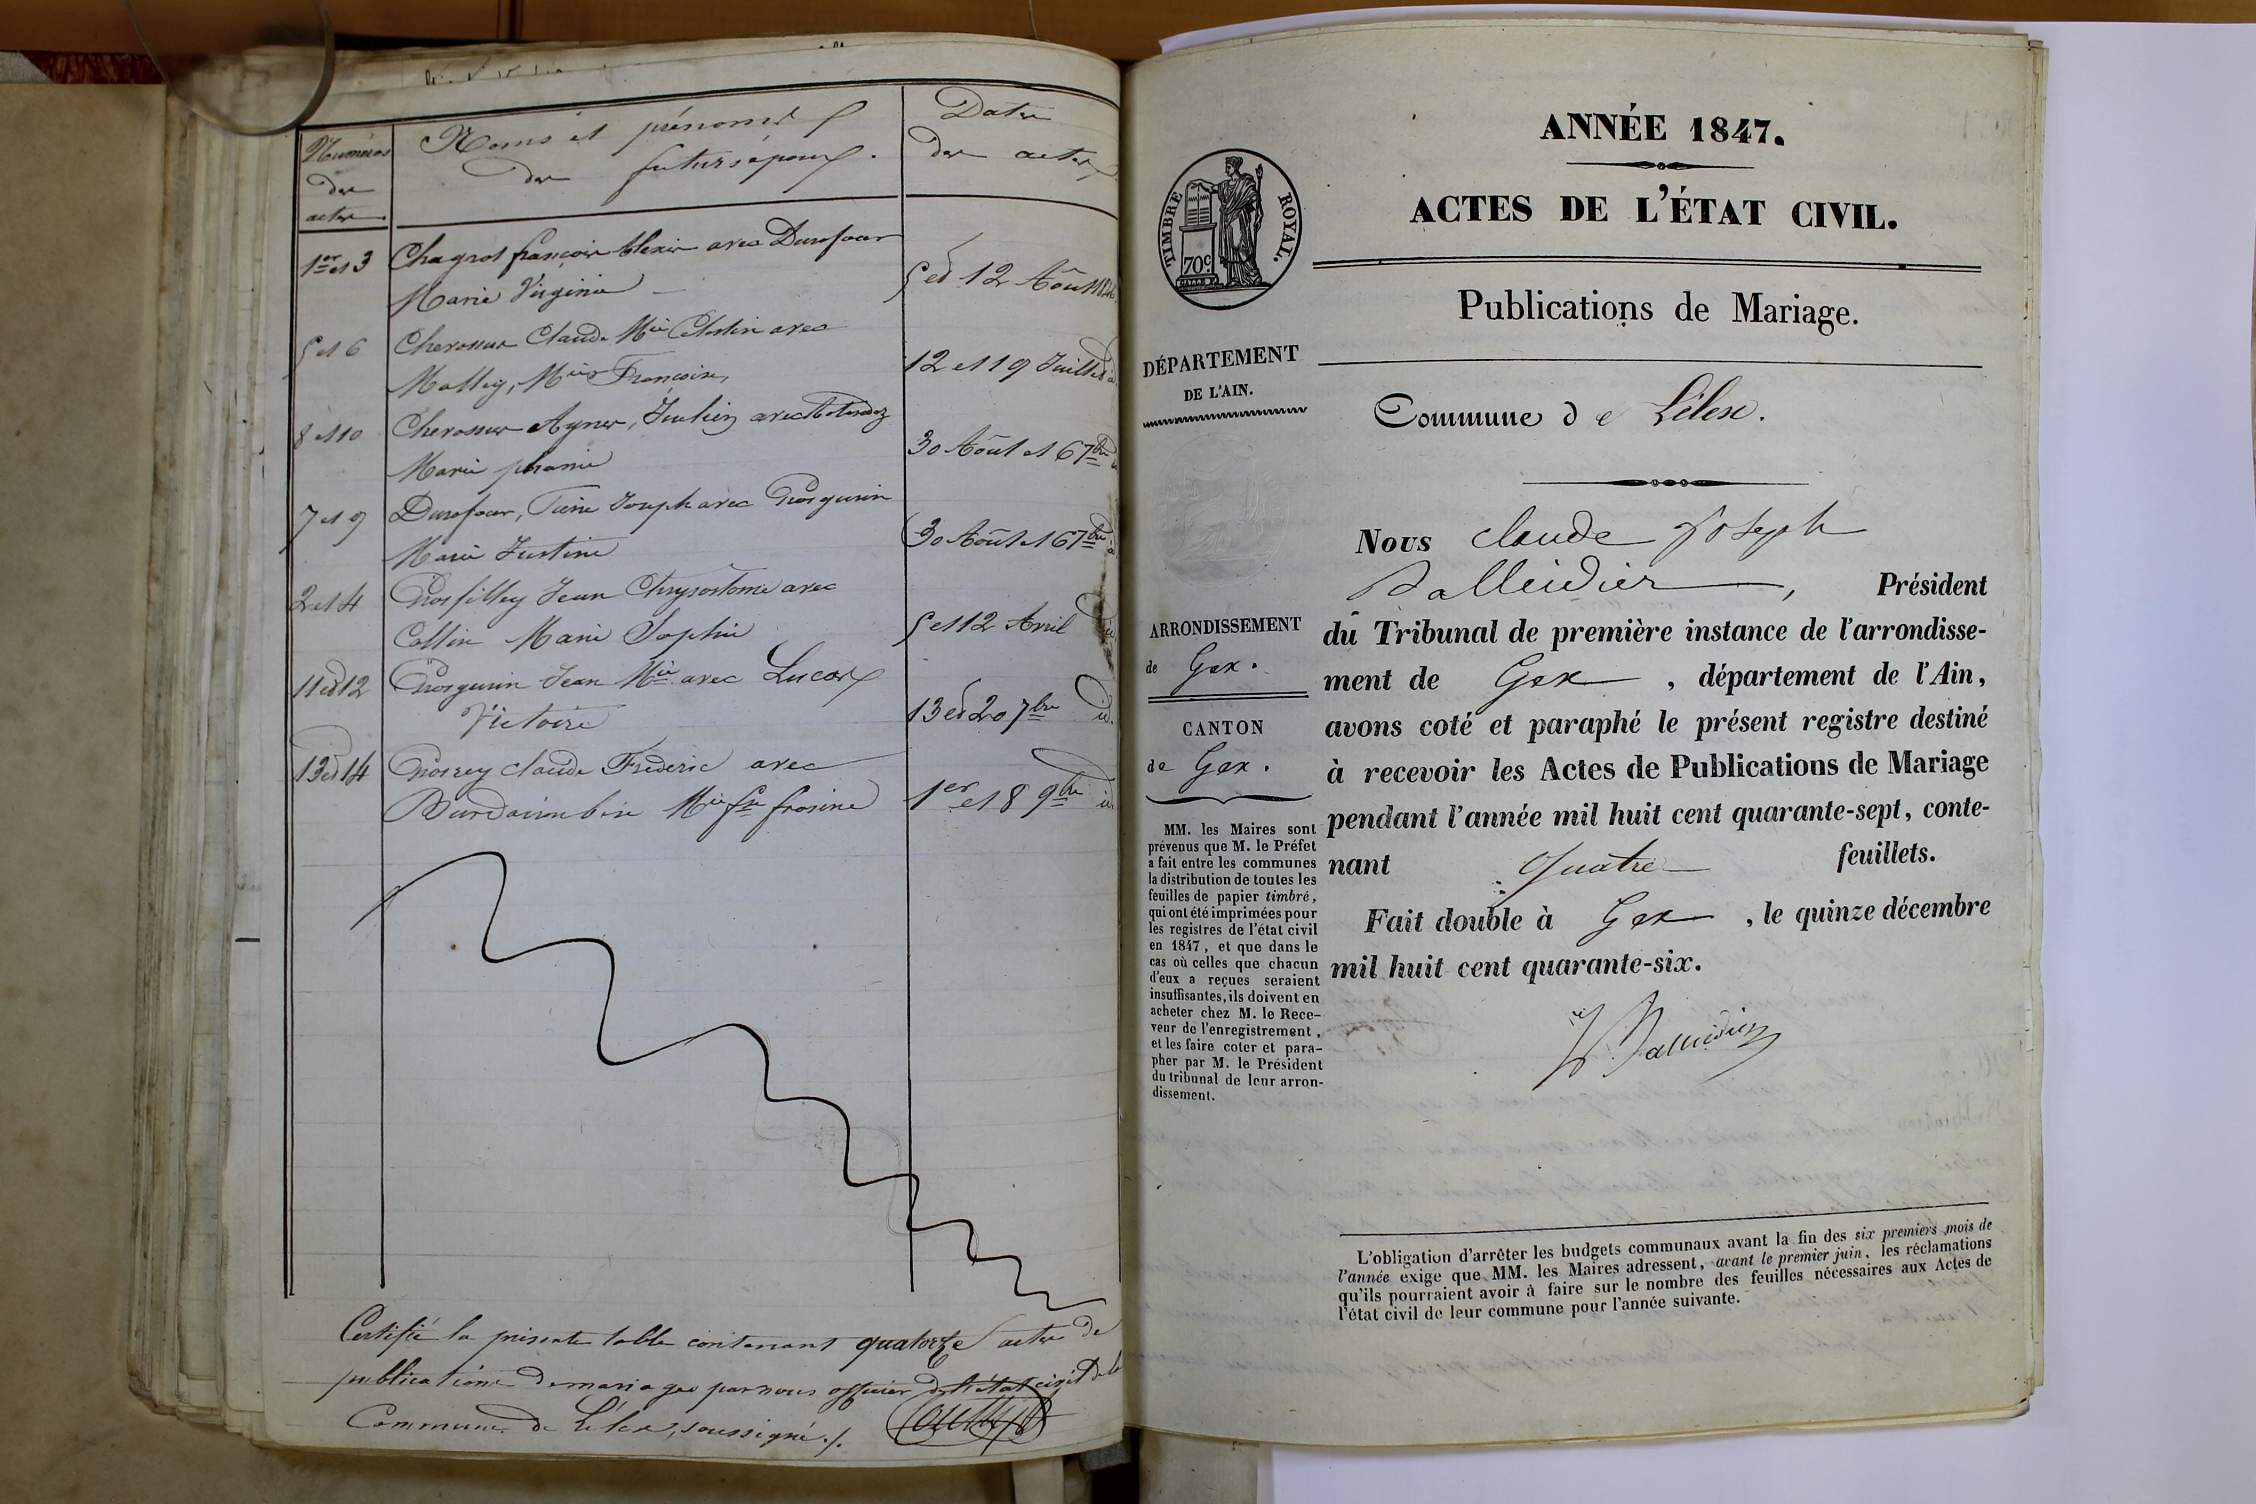 Numéros
des
actes
Noms et prénoms
des futurs époux.
Dates
des actes
1er et 3
Chagrot françois Alexis avec Durafour
Marie Virginie
5 et 12 Août
5 et 6
Claude Mie Célestin avec
Françoise
12 et 19 Juillet
8 et 10
avec
Marie
30 Août et 6 7bre
7 et 9
Durafour, Pierre Joseph avec Grosgurin
Marie Justine
30 Août et 6 7bre
2 et 4
Grosfilley Jean Chrysostome avec
Collin Marie Sophie
5 et 12 Avril
11 et 12
Grosgurin Jean Mie avec
Victoire
13 et 20 7bre id.
13 et 14
Grosrey Claude Frédéric avec
Mie fse frosine
1er et 8 9bre id
Certifié la présente table contenant quatorze actes de
publications de mariages par nous officier de l'état civil de la
Commune de Lélex, soussigné ./.
ANNÉE 1847.
ACTES DE L'ÉTAT CIVIL.
TIMBRE ROYAL.
70c
Publications de Mariage.
DÉPARTEMENT
DE L'AIN.
Commune de Lélex.
ARRONDISSEMENT
de Gex.
CANTON
de Gex.
MM. les Maires sont
prévenus que M. le Préfet
a fait entre les communes
la distribution de toutes les
feuilles de papier timbré,
qui ont été imprimées pour
les registres de l'état civil
en 1847, et que dans le
cas où celles que chacun
d'eux a reçues seraient
insuffisantes, ils doivent en
acheter chez M. le Rece-
veur de l'enregistrement,
et les faire coter et para-
pher par M. le Président
du tribunal de leur arron-
dissement.
Nous Claude Joseph
Balleidier, Président
du Tribunal de première instance de l'arrondisse-
ment de Gex, département de l'Ain,
avons coté et paraphé le présent registre destiné
à recevoir les Actes de Publications de Mariage
pendant l'année mil huit cent quarante-sept, conte-
nant quatre feuillets.
Fait double à Gex, le quinze décembre
mil huit cent quarante-six.
Balleidier
L'obligation d'arrêter les budgets communaux avant la fin des six premiers mois de
l'année exige que MM. les Maires adressent, avant le premier juin, les réclamations
qu'ils pourraient avoir à faire sur le nombre des feuilles nécessaires aux Actes de
l'état civil de leur commune pour l'année suivante.